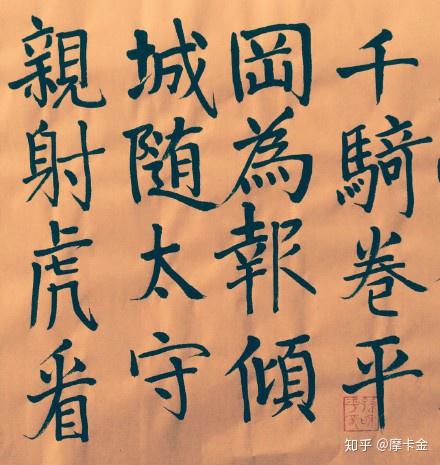 千騎卷平
岡為報傾
城随太守
親射虎看
知乎 @摩卡金